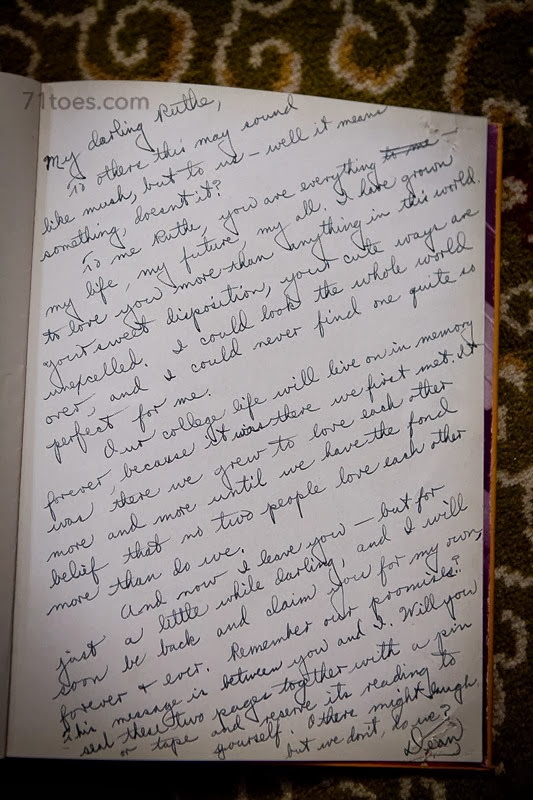 71toes.com
My darling Ruthe,
To others this may sound
like mush, but to us – well it means
something, doesnt it?
To me Ruthe, you are everything to me –
my life, my future, my all. I have grown
to love you more than anything in this world.
Your sweet disposition, your cute ways are
unexcelled. I could look the whole world
over, and I could never find one quite so
perfect for me.
Our college life will live on in memory
forever, because it was there we first met. It
was there we grew to love each other
more and more until we have the fond
belief that no two people love each other
more than do we.
And now I leave you – but for
just a little while darling, and I will
soon be back and claim you for my own,
forever & ever. Remember our promises?
This message is between you and I. Will you
seal these two pages together with a pin
or tape and reserve its reading to
yourself. Others might laugh
but we don't, do we?
Dean